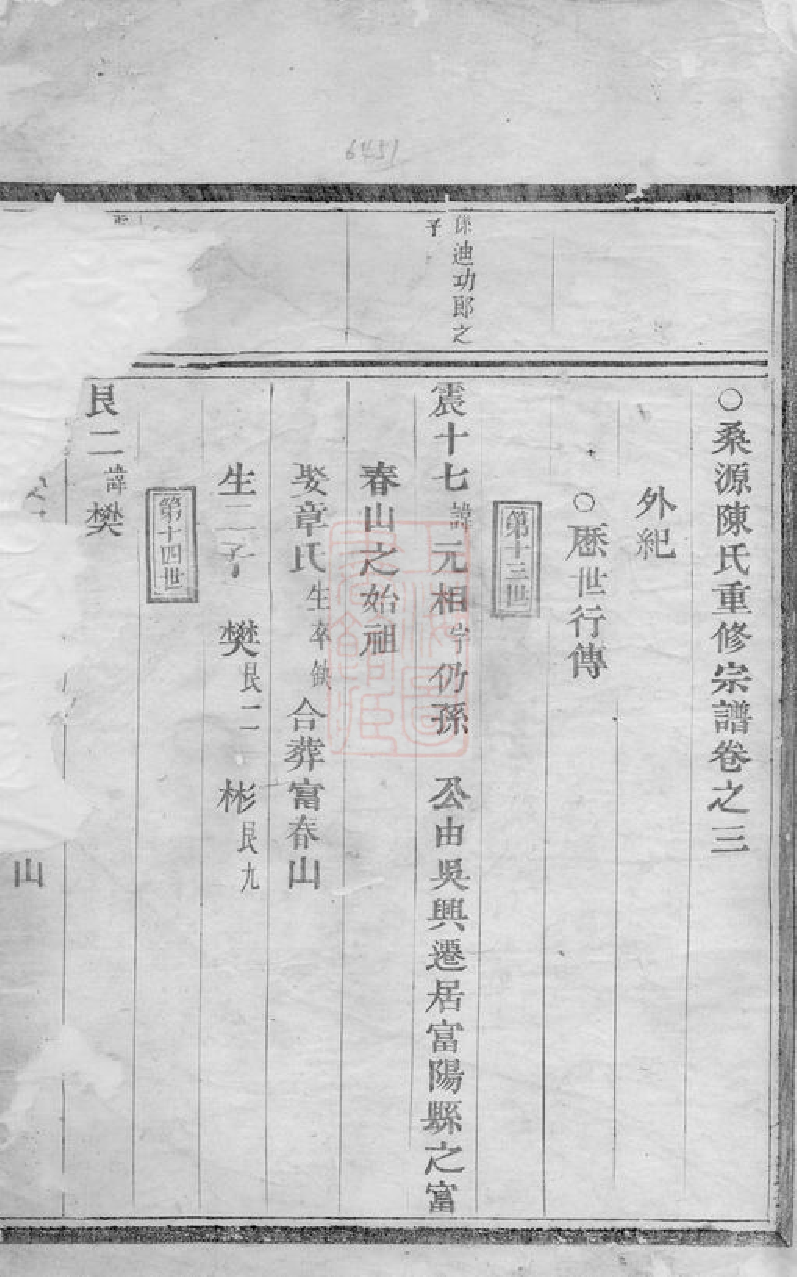 6451
○桑源陳氏重修宗譜卷之三
外紀
○歷世行傳
第十三世
係迪功郎之
子
震十七諱元相字仍孫 公由吳興遷居富陽縣之富
春山之始祖
娶章氏生卒缺合葬富春山
生二子 樊艮二 彬艮九
第十四世
艮二諱樊
山